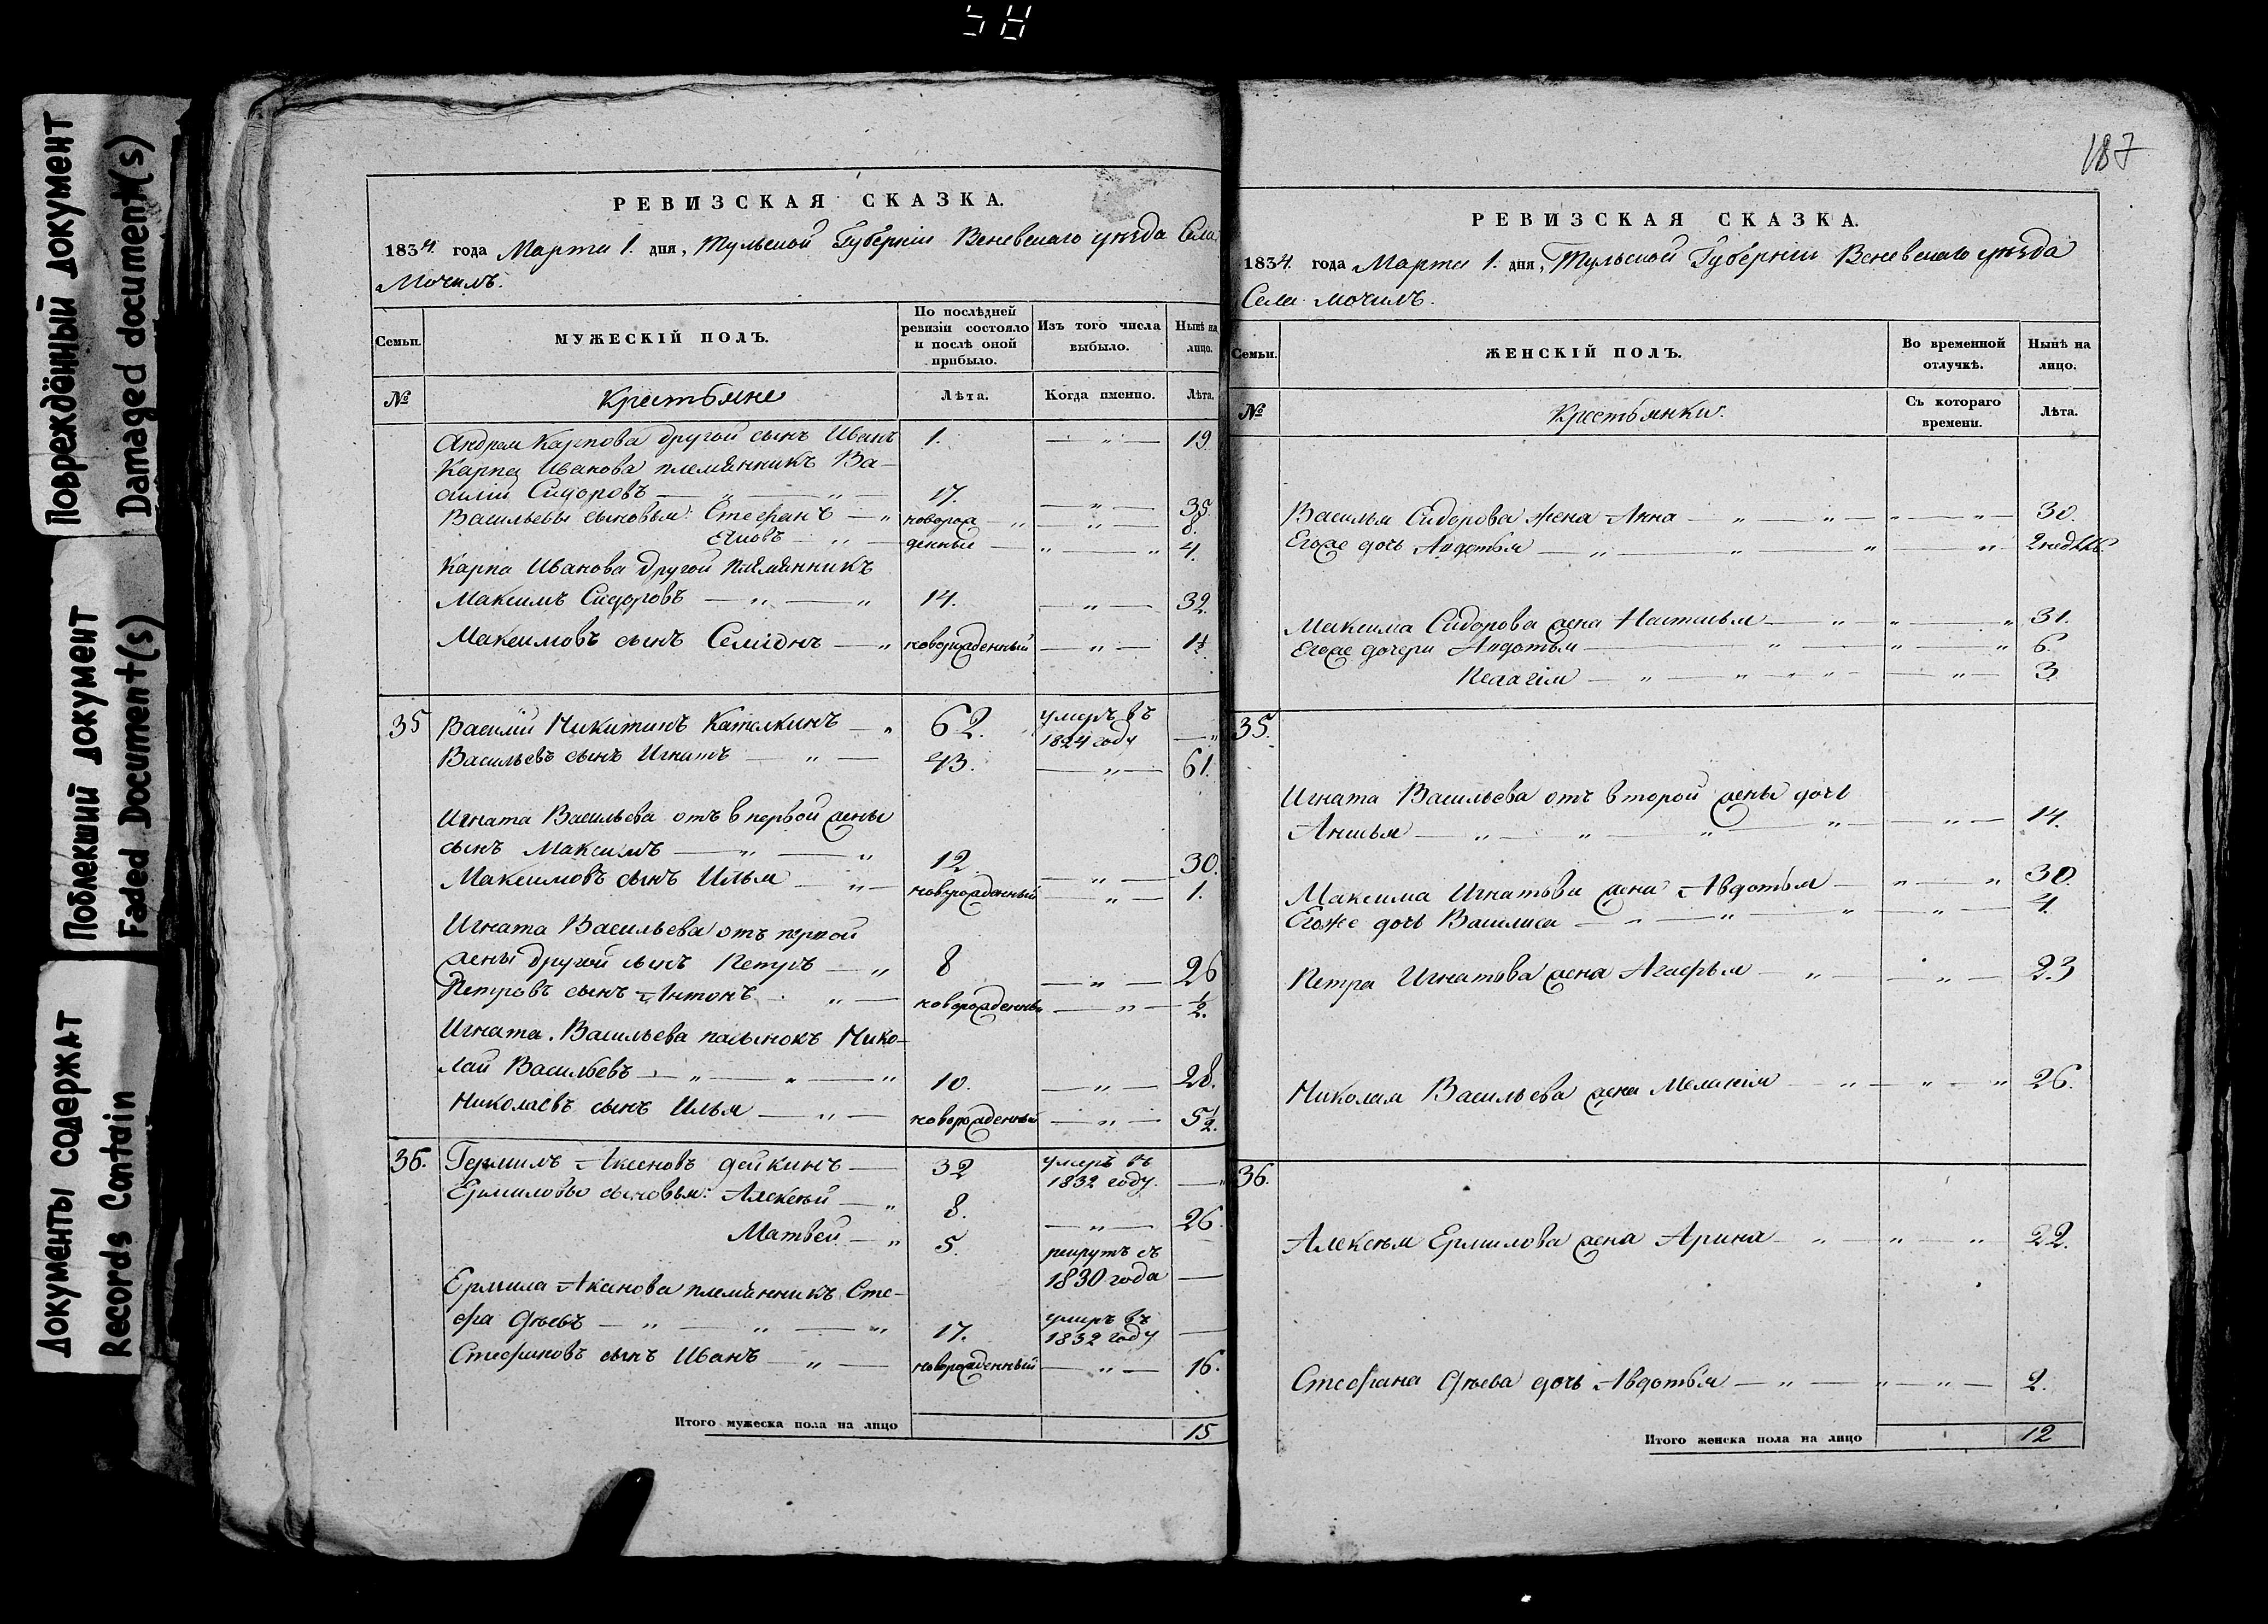 58
Повреждённый документ
Damaged document(s)
Поблекший документ
Faded Document(s)
Документы содержат
Records Contain
РЕВИЗСКАЯ СКАЗКА.
1834. года Марта 1. дня, Тульской Губернiи Веневскаго уѣзда Села
Мочилъ.
Семьи.
МУЖЕСКІЙ ПОЛЪ.
По послѣдней
ревизіи состояло
и послѣ оной
прибыло.
Изъ того числа
выбыло.
Нынѣ на
лицо.
№ Крестьяне Лѣта. Когда именно. Лѣта.
Андрея Карпова другой сынъ Иванъ 1. — „ — 19
Карпа Иванова племянникъ Ва-
силiй Сидоровъ — „ — „ — 17. — „ — 35.
Васильевы сыновья: Стефанъ — „ новорож — „ — „ — 8.
Яковъ — „ — денные — „ — „ 4.
Карпа Иванова другой племянникъ
Максимъ Сидоровъ — „ — „ 14. — „ — 32.
Максимовъ сынъ Семiонъ — „ новорожденный — „ —
35 Василiй Никитинъ — „ 62. умеръ въ
1824 году — „
Васильевъ сынъ Игнатъ — „ — 43. — „ — 61.
Игната Васильева отъ в первой жены
сынъ Максимъ — „ — „ 12 — „ — 30.
Максимовъ сынъ Илья — „ — новорожденный — „ — 1.
Игната Васильева отъ первой
жены другой сынъ Петръ — „ 8 — „ — 26
Петровъ сынъ Антонъ — „ — новорожденный — „ — ½.
Игната Васильева пасынокъ Нико-
лай Васильевъ — „ — „ — „ 10. — „ — 28.
Николаевъ сынъ Илья — „ — новорожденный — „ — 5½.
36. Аксеновъ — 32 умеръ въ
1832 году. — „
Ермиловы сыновья: Алексѣй — „ 8. — „ — 26.
Матвей — „ 5. рекрутъ съ
1830 года —
Ермила Аксенова племянникъ Сте-
фа — „ — „ — „ 17. умеръ въ
1832 году —
Стефановъ сынъ Иванъ — „ — новорожденный — „ — 16.
Итого мужеска пола на лицо 15
187
РЕВИЗСКАЯ СКАЗКА.
1834. года Марта 1. дня, Тульской Губернiи Веневскаго уѣзда
Села Мочилъ.
Семьи.
ЖЕНСКІЙ ПОЛЪ.
Во временной
отлучкѣ.
Нынѣ на
лицо.
№ Крестьянки.
Съ котораго
времени.
Лѣта.
Василья Сидорова жена Анна — „ — „ — „ — „ — 30.
Егоже дочь Авдотья — „ — „ — „ — „ 2 нед
Максима Сидорова жена Настасья — „ — „ — „ 31.
Егоже дочери Авдотья — „ — „ — „ 6.
Пелагiя — „ — „ — „ — „ — „ — 3.
35.
Игната Васильева отъ второй жены дочь
— „ — „ — „ — „ — „ — 14.
Максима Игнатьва жена Авдотья — „ — „ 30.
Егоже дочь Василиса — „ — „ — „ — „ — 4.
Петра Игнатьва жена Агафья — „ — „ — 23
Николая Васильева жена Меланiя — „ — „ — „ 26.
36.
Алексѣя Ермилова жена Арина — „ — „ — „ 22.
Стефана дочь Авдотья — „ — „ — „ — 2.
Итого женска пола на лицо 12